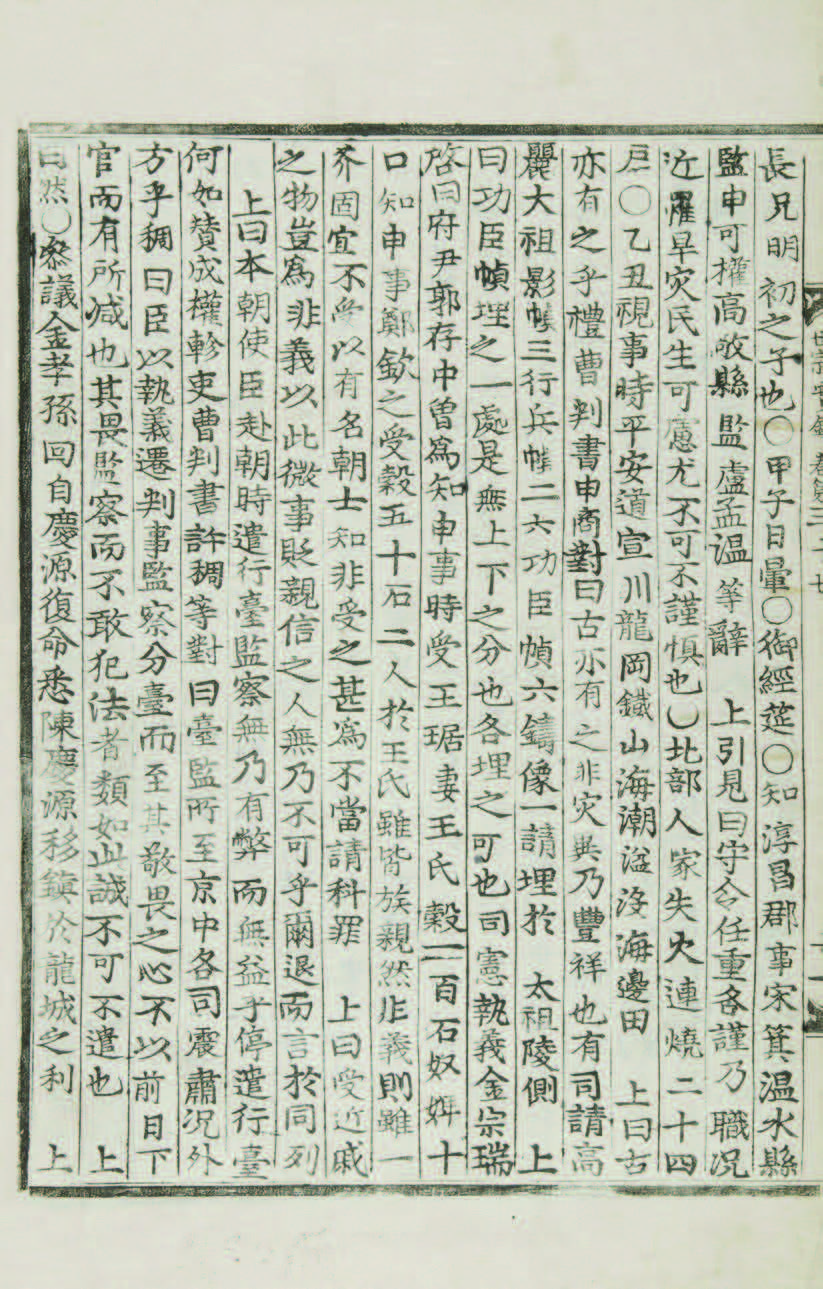 長兄明初之子也○甲子日暈○御經筵○知淳昌郡事宋箕溫水縣
監申可權高敞縣監盧孟溫等辭　上引見曰守令任重各謹乃職況
近罹旱灾民生可慮尤不可不謹愼也○北部人家失火連燒二十四
戶○乙丑視事時平安道宣川龍岡鐵山海潮溢沒海邊田　上曰古
亦有之乎禮曹判書申商對曰古亦有之非灾與乃豐祥也有司請高
麗大祖影幀三行兵幀二六功臣幀六鑄像一請埋於　太祖陵側　上
曰功臣幀埋之一處是無上下之分也各埋之可也司憲執義金宗瑞
啓曰府尹郭存中曾爲知申事時受王琚妻王氏穀一百石奴婢十
口知申事鄭欽之受穀五十石二人於王氏雖皆族親然非義則雖一
芥固宜不受以有名朝士知非受之甚爲不當請科罪　上曰受近戚
之物豈爲非義以此微事貶親信之人無乃不可乎爾退而言於同列
上曰本朝使臣赴朝時遣行臺監察無乃有弊而無益乎停遣行臺
何如贊成權軫吏曹判書許稠等對曰臺監所至京中各司震肅況外
方乎稠曰臣以執義遷判事監察分臺而至其敬畏之心不以前日下
官而有所减也其畏監察而不敢犯法者類如此誠不可不遣也　上
曰然○叅議金孝孫回自慶源復命悉陳慶源移鎭於龍城之利　上
世宗實錄 卷第三十七